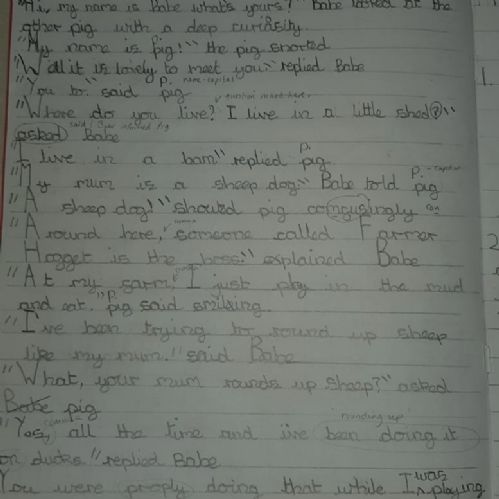 "Hi, my name is Babe what's yours?" Babe looked at the
other pig with a deep curiosity.
"My name is Pig!" the pig snorted
"Well it is lovely to meet you" replied Babe
P. name-capital
"You to" said pig
question mark here
"Where do you live? I live in a little shed?"
asked Babe
P.
"I live in a barn" replied pig.
P. - capital
"My mum is a sheep dog" Babe told pig
"A sheep dog!" shouted pig confusingly
"A round here, someone called Farmer
Hogget is the boss" explained Babe
"At my farm, I just play in the mud
and eat." P. pig said smiling.
"I've been trying to round up sheep
like my mum." said Babe
"What, your mum rounds up sheep?" asked
Babe pig
rounding up
"Yes, all the time and i've been doing it
on ducks" replied Babe
You were proply doing that while I was playing
1.
2